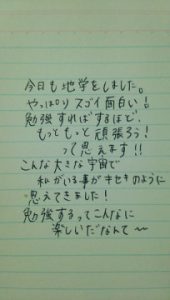 今日も地学をしました。
やっぱりスゴイ面白い！
勉強すればするほど、
もっともっと頑張ろう！
って思えます!!
こんな大きな宇宙で
私がいる事がキセキのように
思えてきました！
勉強するってこんなに
楽しいだなんて〜